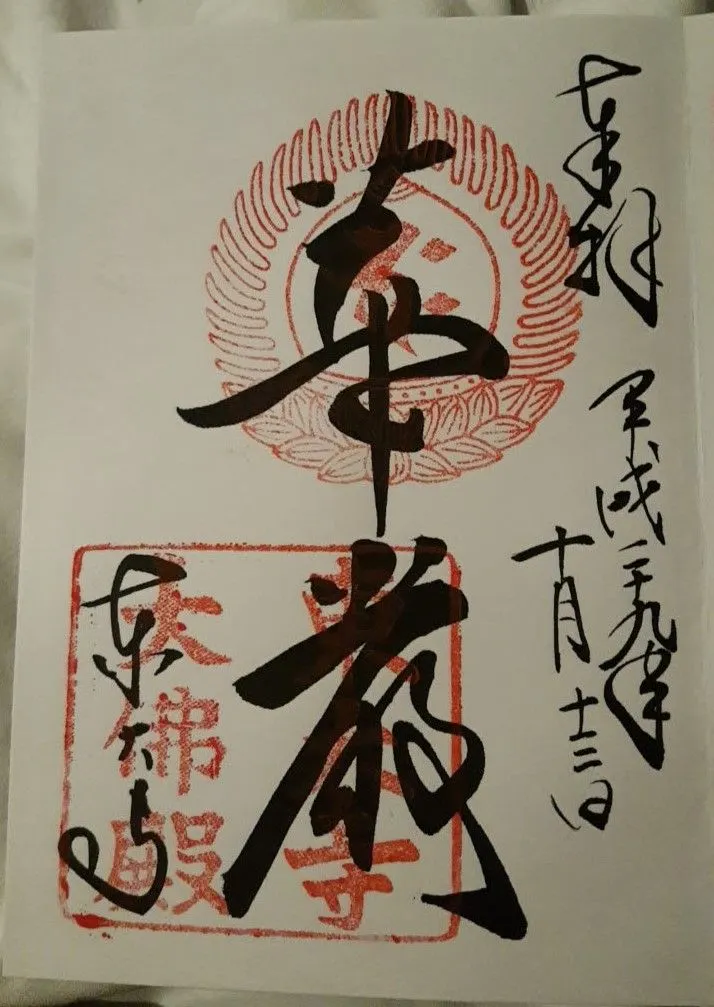 奉拝
平成二十九年
十月十三日
華厳
東大寺
東大寺
大佛殿